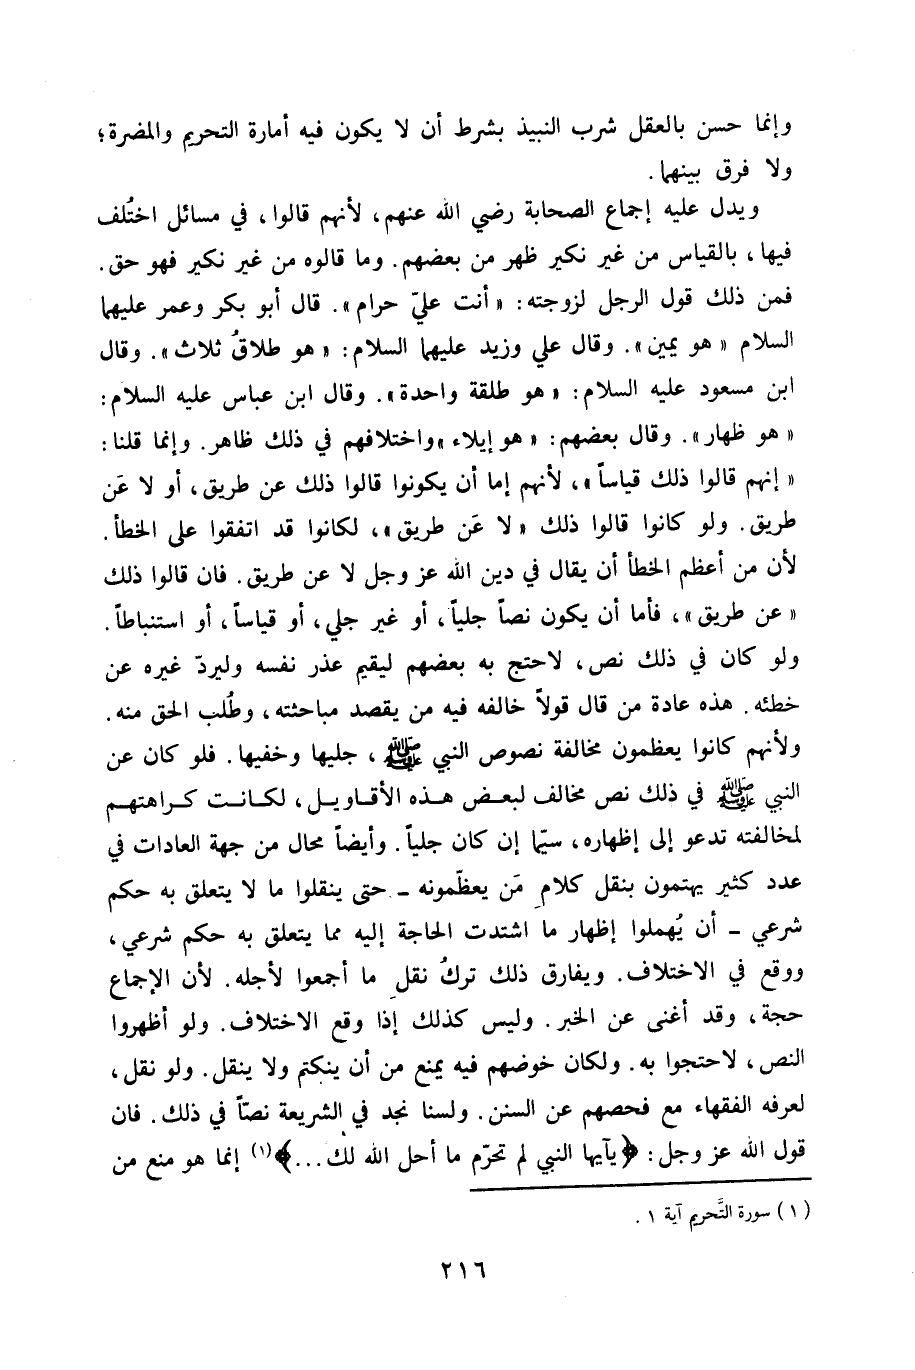 وإنما حسن بالعقل شرب النبيذ بشرط أن لا يكون فيه أمارة التحريم والمضرة؛
ولا فرق بينهما.
ويدل عليه إجماع الصحابة رضي الله عنهم، لأنهم قالوا، في مسائل اختُلف
فيها، بالقياس من غير نكير ظهر من بعضهم. وما قالوه من غير نكير فهو حق.
فمن ذلك قول الرجل لزوجته: «أنت عليّ حرام». قال أبو بكر وعمر عليهما
السلام «هو يمين». وقال علي وزيد عليهما السلام: «هو طلاقُ ثلاث». وقال
ابن مسعود عليه السلام: «هو طلقة واحدة». وقال ابن عباس عليه السلام:
«هو ظهار». وقال بعضهم: «هو إيلاء» واختلافهم في ذلك ظاهر. وإنما قلنا:
«إنهم قالوا ذلك قياساً»، لأنهم إما أن يكونوا قالوا ذلك عن طريق، أو لا عَن
طريق. ولو كانوا قالوا ذلك «لا عَن طريق»، لكانوا قد اتفقوا على الخطأ.
لأن من أعظم الخطأ أن يقال في دين الله عز وجل لا عن طريق. فان قالوا ذلك
«عن طريق»، فأما أن يكون نصاً جلياً، أو غير جلي، أو قياساً، أو استنباطاً.
ولو كان في ذلك نص، لاحتج به بعضهم ليقيم عذر نفسه وليردّ غيره عن
خطئه. هذه عادة من قال قولاً خالفه فيه من يقصد مباحثته، وطُلب الحق منه.
ولأنهم كانوا يعظمون مخالفة نصوص النبي ﷺ، جليها وخفيها. فلو كان عن
النبي ﷺ في ذلك نص مخالف لبعض هذه الأقاويل، لكانت كراهتهم
لمخالفته تدعو إلى إظهاره، سيّما إن كان جلياً. وأيضاً محال من جهة العادات في
عدد كثير يهتمون بنقل كلامِ مَن يعظّمونه - حتى ينقلوا ما لا يتعلق به حكم
شرعي - أن يُهملوا إظهار ما اشتدت الحاجة إليه مما يتعلق به حكم شرعي،
ووقع في الاختلاف. ويفارق ذلك تركُ نقلِ ما أجمعوا لأجله. لأن الإجماع
حجة، وقد أغنى عن الخبر. وليس كذلك إذا وقع الاختلاف. ولو أظهروا
النص، لاحتجوا به. ولكان خوضهم فيه يمنع من أن ينكتم ولا ينقل. ولو نقل،
لعرفه الفقهاء مع فحصهم عن السنن. ولسنا نجد في الشريعة نصّاً في ذلك. فان
قول الله عز وجل: ﴿يآيها النبي لم تحرّم ما أحل الله لك...﴾(١) إنما هو منع من
(١) سورة التَّحريم آية ١.
٢١٦